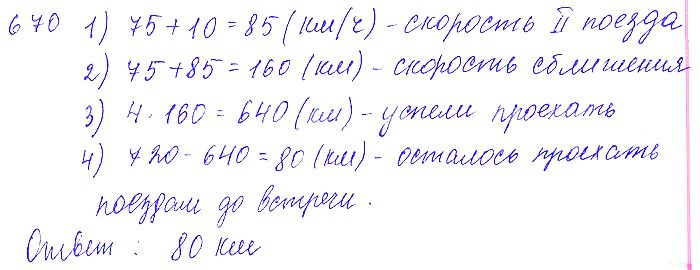 670 1) 75 + 10 = 85 (км/ч) - скорость II поезда
2) 75 + 85 = 160 (км) - скорость сближения
3) 4 · 160 = 640 (км) - успели проехать
4) 720 - 640 = 80 (км) - осталось проехать
поездам до встречи.
Ответ : 80 км